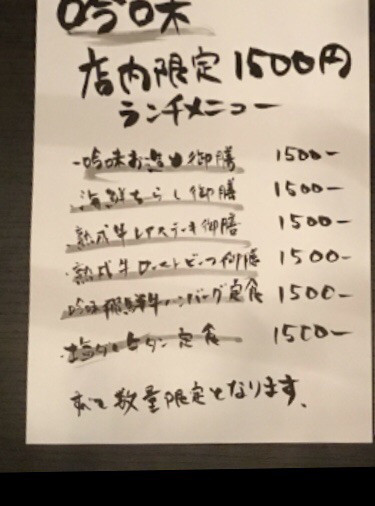 吟味
店内限定1500円
ランチメニュー
・吟味お造り御膳 1500-
・海鮮ちらし御膳 1500-
・熟成牛レアステーキ御膳 1500-
・熟成牛ローストビーフ御膳 1500-
・吟味飛騨牛ハンバーグ定食 1500-
・塩タン定食 1500-
すべて数量限定となります。